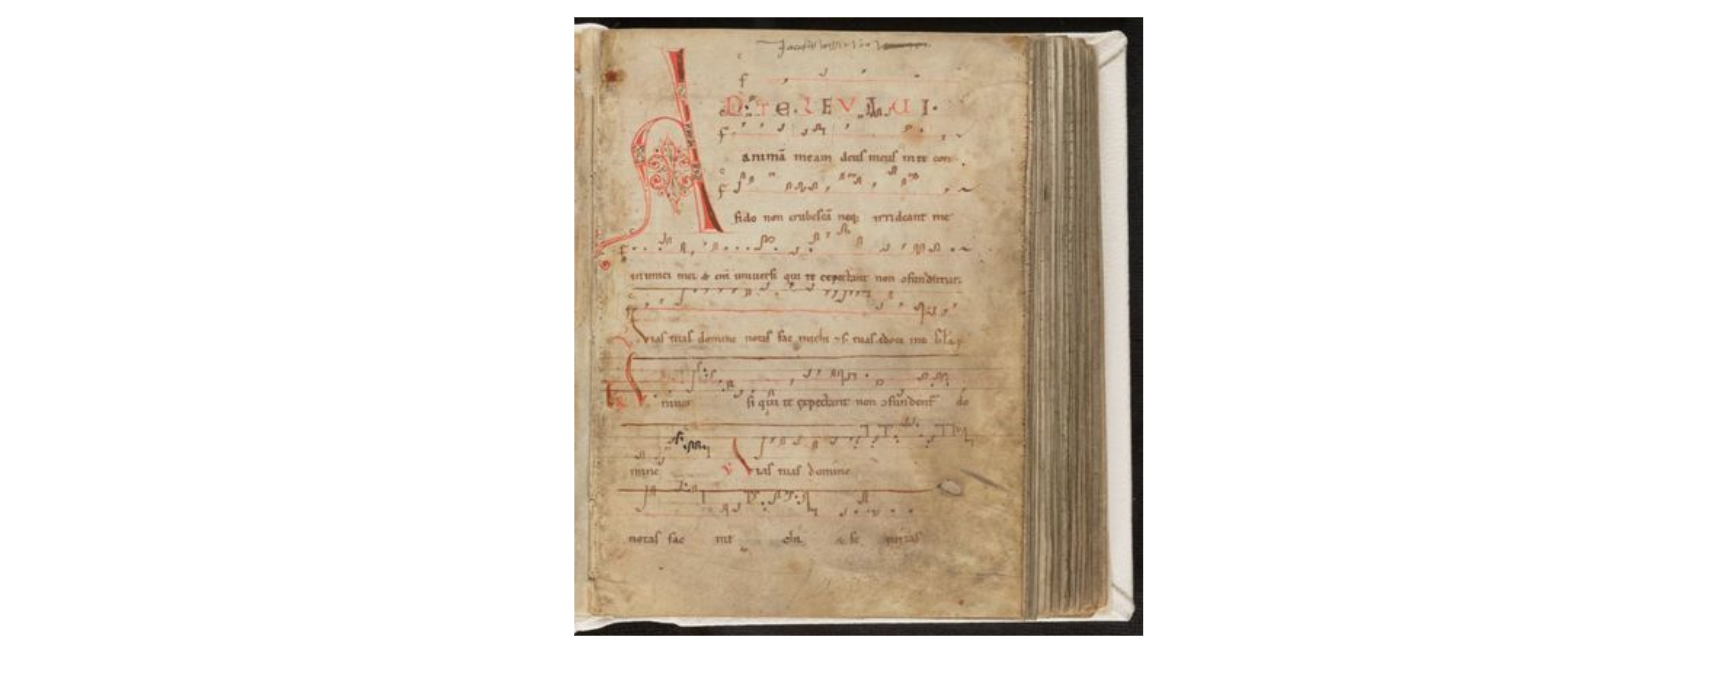 AD TE LEVAUI
animā meam deus meus in te con
fido non erubescā neq; irrideant me
inimici mei & eni universi qui te expectant non ɔfundentur
Vias tuas domine notas fac michi & se tuas edoce me
si qui te expectant non ɔfundent do
mine V Vias tuas domine
notas fac mi chi & se mitas